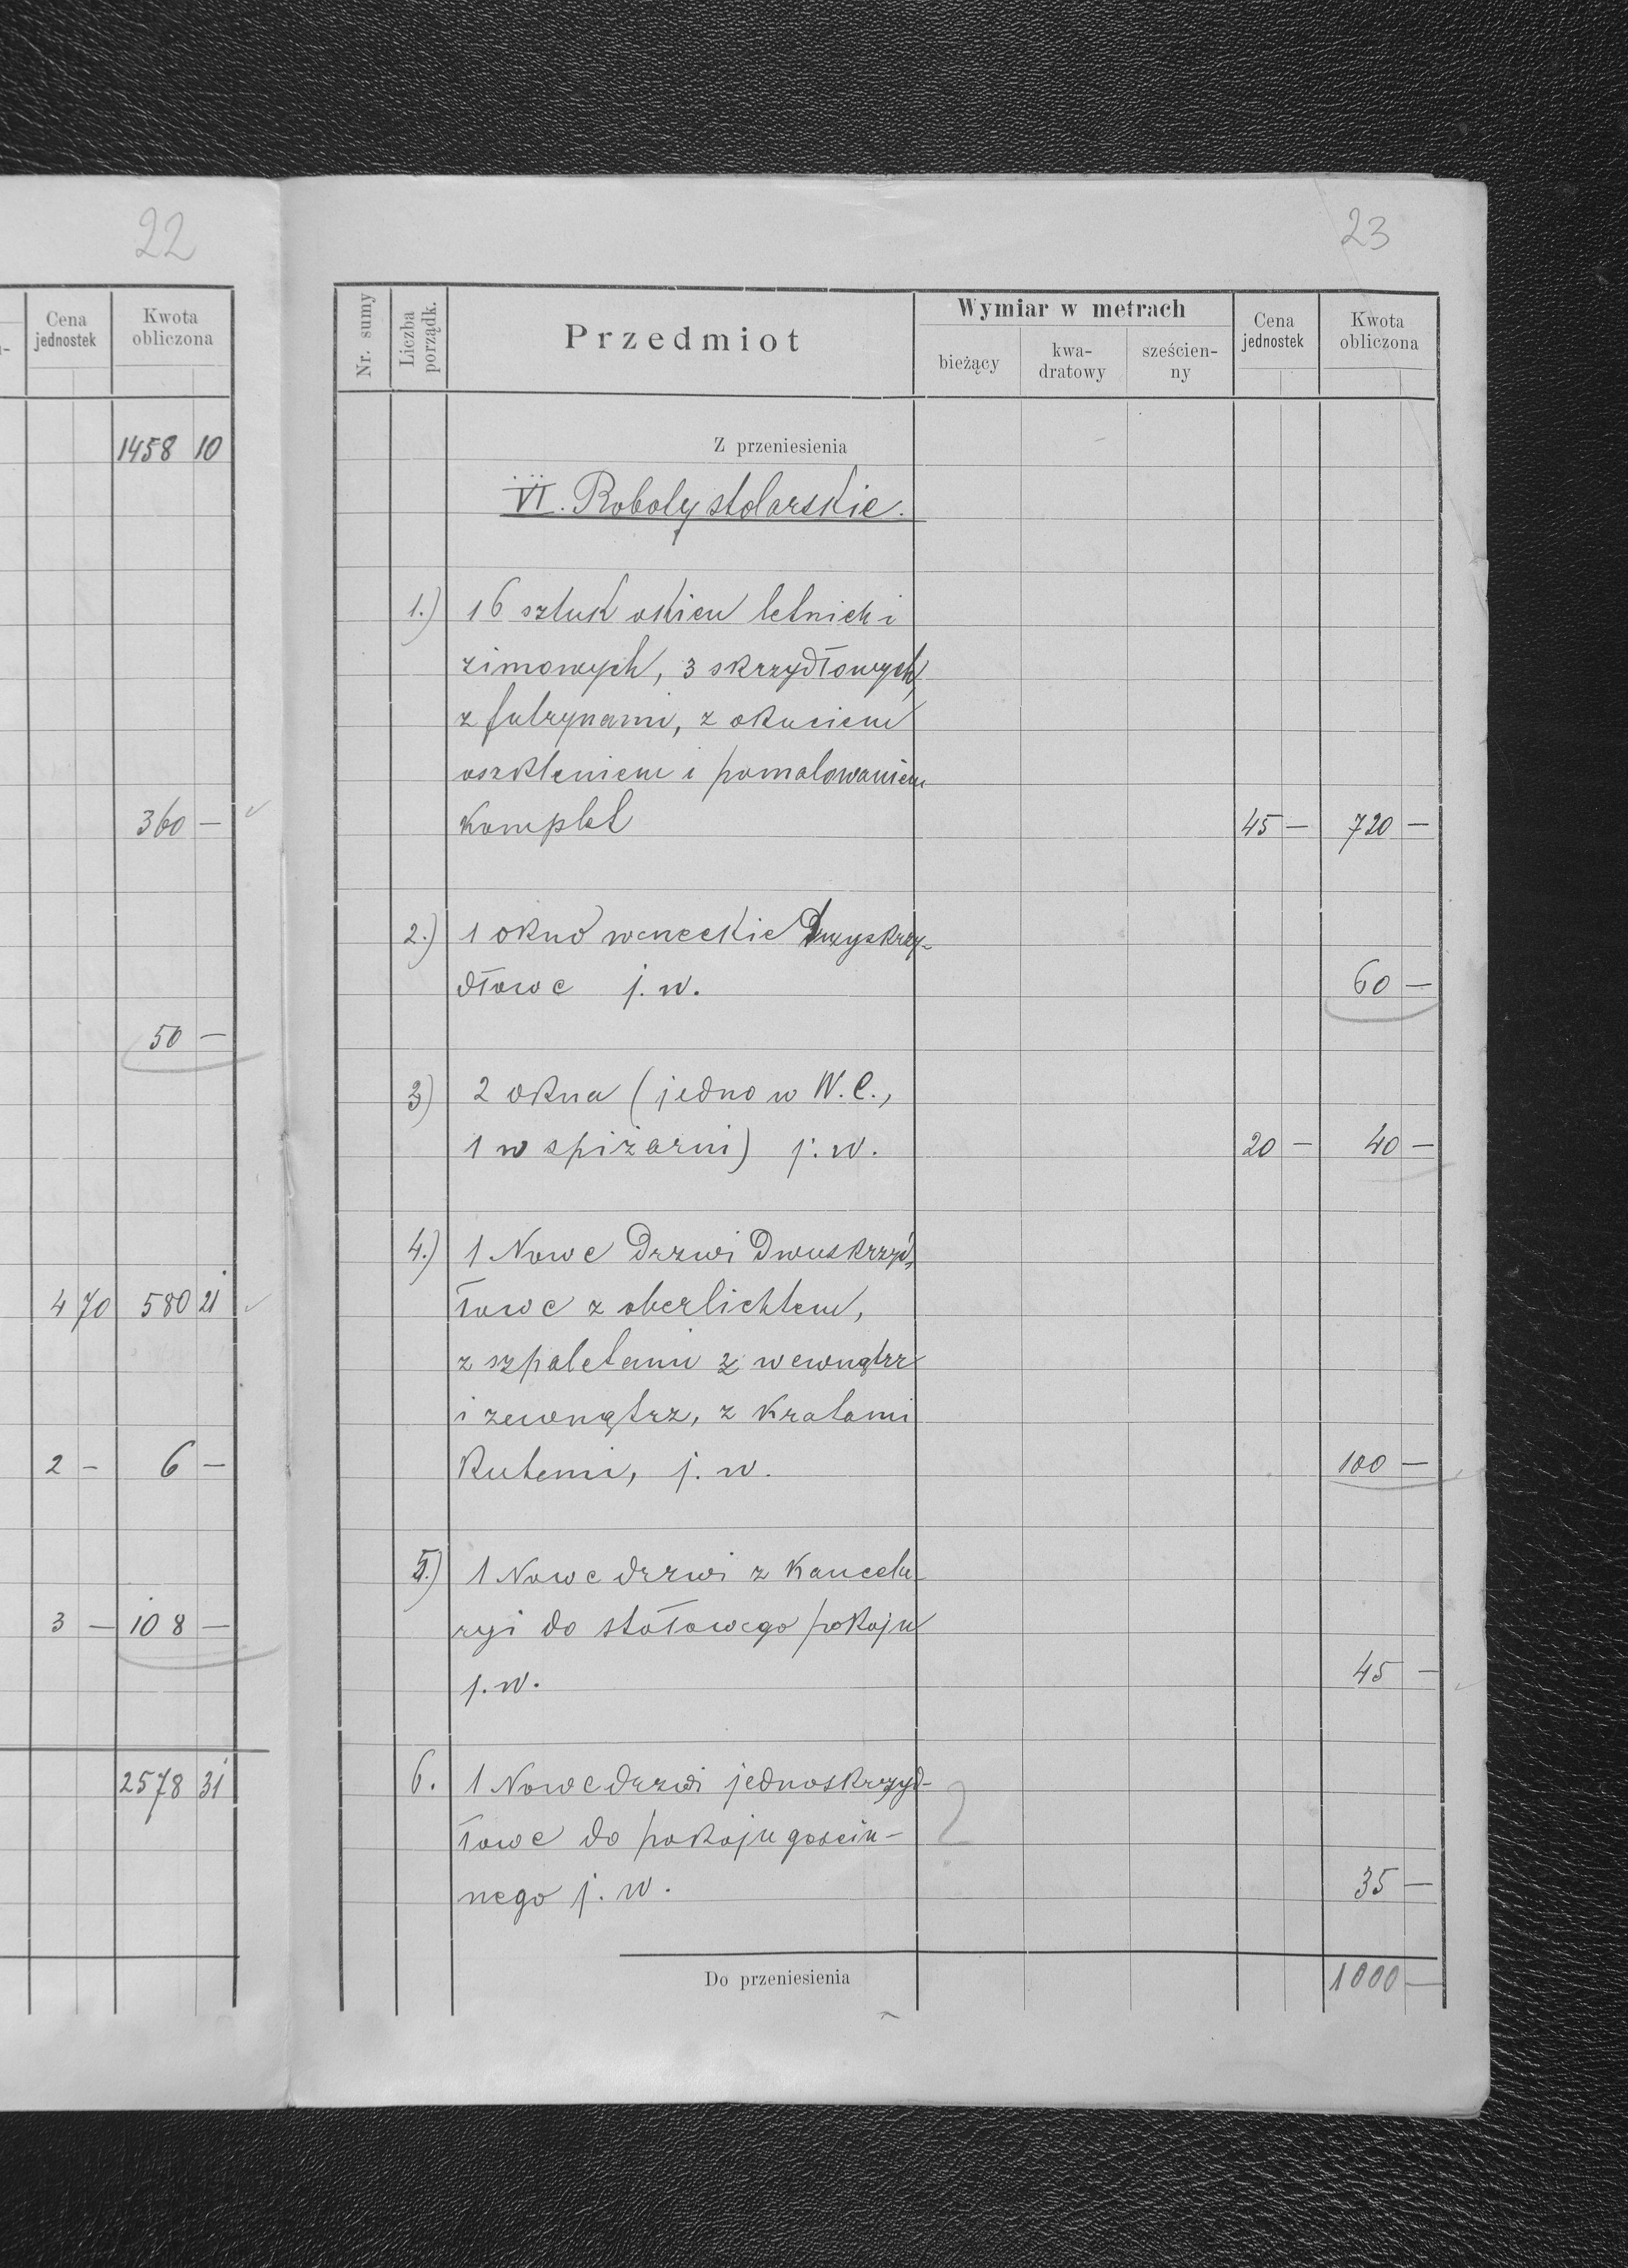 22
Cena jednostek
Kwota obliczona
1458 10
360 —
50 —
4 70 580 21
2 — 6 —
3 — 108 —
2578 31
23
Nr. sumy
Liczba porządk.
Przedmiot
Wymiar w metrach
bieżący
kwa-
dratowy
sześcien-
ny
Cena jednostek
Kwota obliczona
Z przeniesienia
VI. Roboty stolarskie.
1.) 16 sztuk okien letnich i
zimowych, 3 skrzydłowych,
z futrynami, z okuciem
oszkleniem i pomalowaniem
komplet 45 — 720 —
2.) 1 okno weneckie trzyskrzy-
dłowe j. w. 60 —
3) 2 okna (jedno w W.C.,
1 w spiżarni) j. w. 20 — 40 —
4.) 1 Nowe drzwi dwuskrzyd-
łowe z oberlichtem,
z szpaletami z wewnątrz
i zewnątrz, z kratami
kutemi, j. w. 100 —
5.) 1 Nowe drzwi z kancela-
ryi do stołowego pokoju
j. w. 45 —
6. 1 Nowe drzwi jednoskrzyd-
łowe do pokoju gościn-
nego j. w. 35 —
2
Do przeniesienia 1000 —